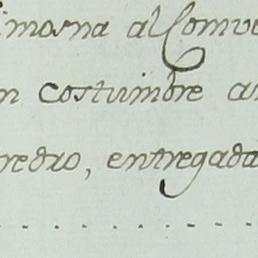 limosna al Conve
n costumbre an
redro, entregada
. . . . . . . . . . .